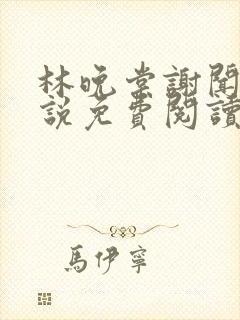 林晚棠謝聞
說免費閱讀
馬伊寧